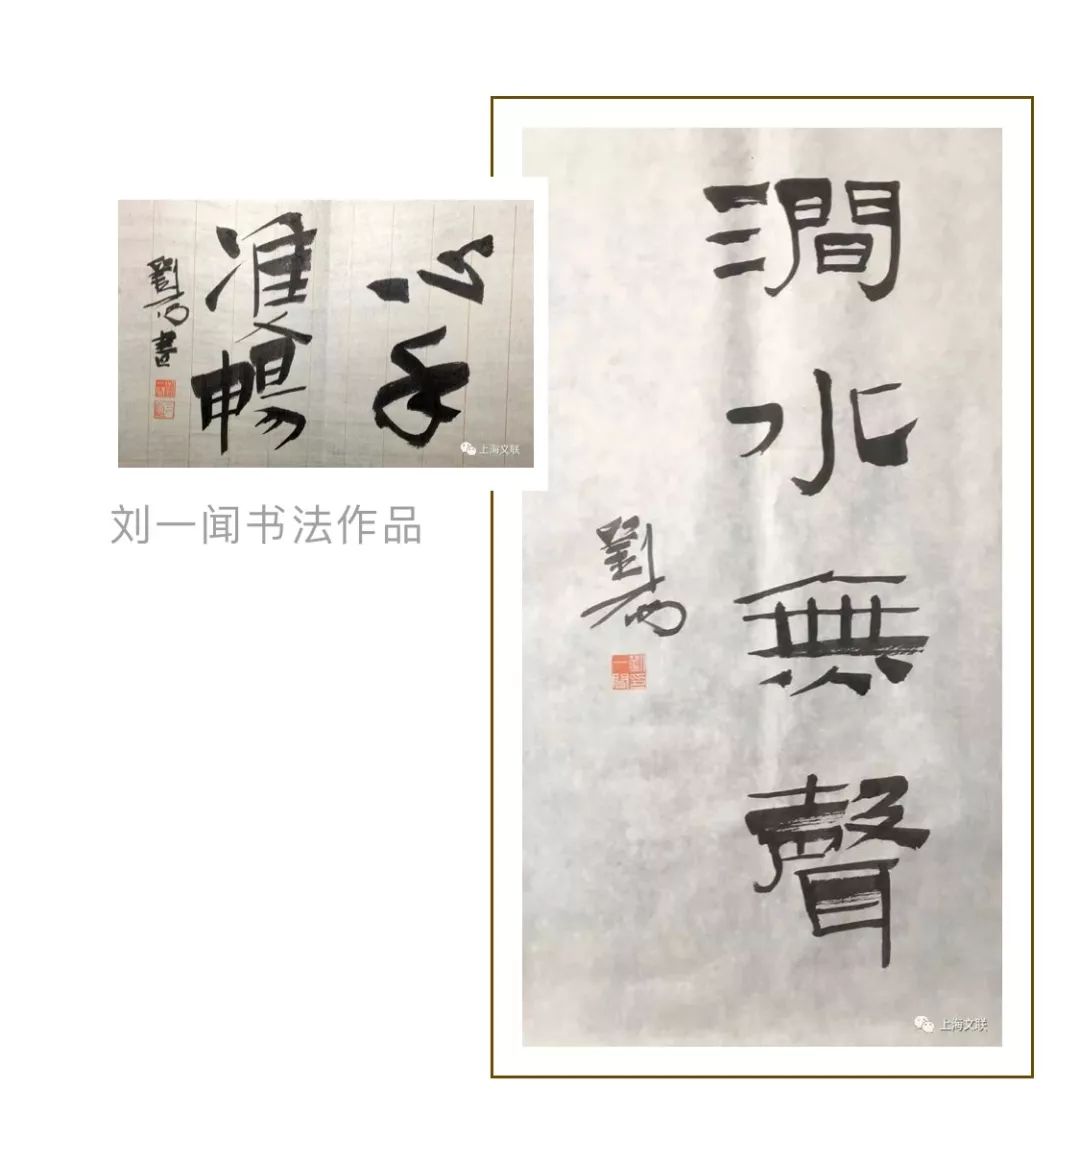 心手
雙暢
劉一聞書
上海文联
刘一闻书法作品
澗水無聲
劉一聞
上海文联